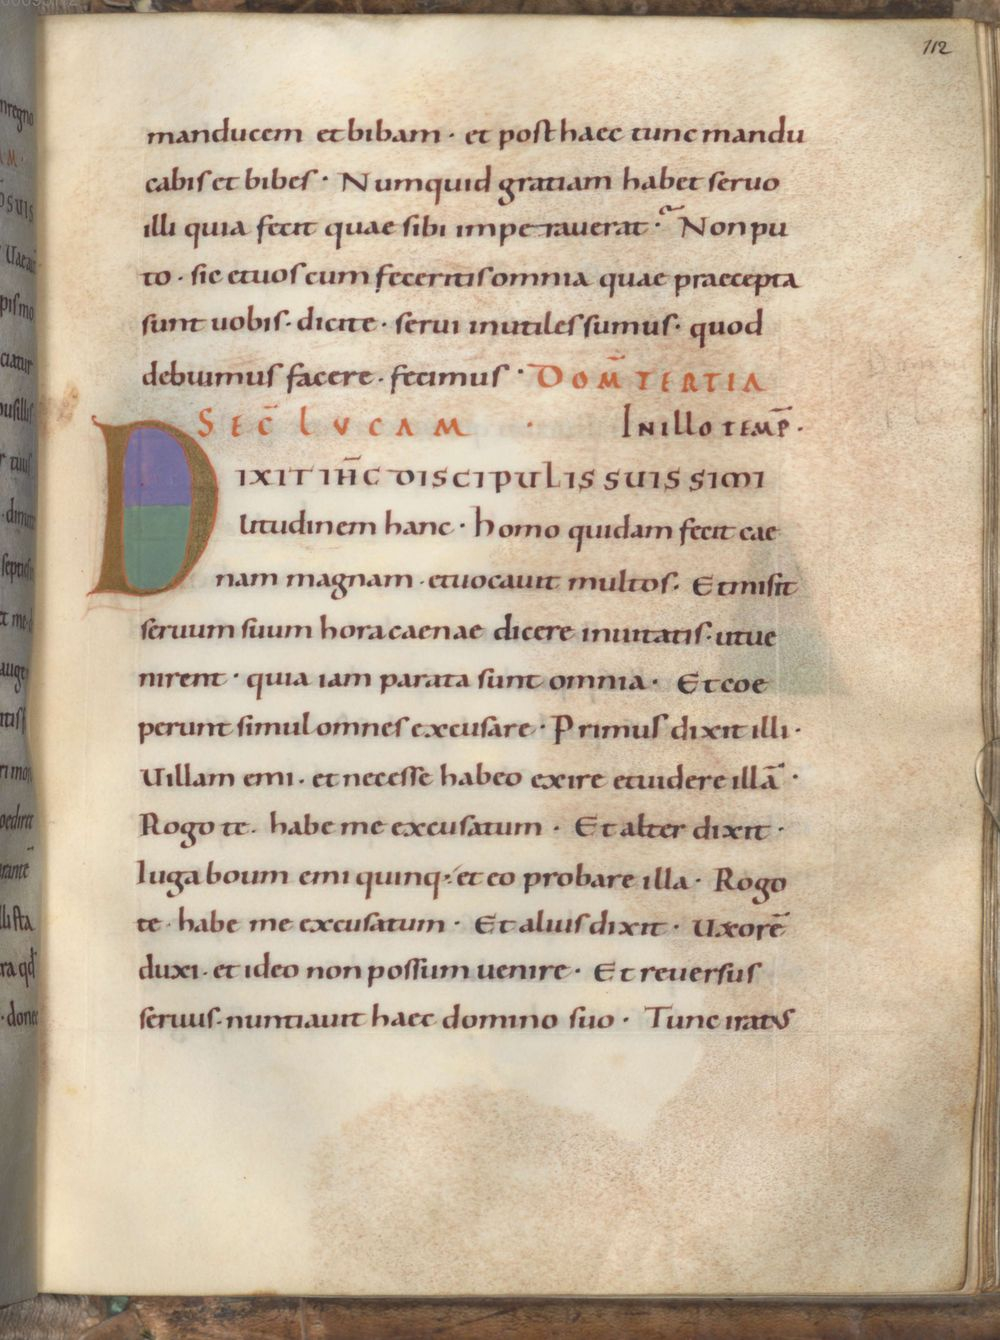 112
manducem et bibam · et post haec tunc mandu
cabis et bibes · Numquid gratiam habet seruo
illi quia fecit quae sibi imperauerat · Non pu
to · sic et uos cum feceritis omnia quae praecepta
sunt uobis · dicite · serui inutiles sumus · quod
debuimus facere · fecimus · DOM̄ TERTIA
SEC̄ LVCAM · IN ILLO TEMP̄ ·
DIXIT IHC̄ DISCIPULIS SUIS SIMI
litudinem hanc · homo quidam fecit cae
nam magnam · et uocauit multos · Et misit
seruum suum hora caenae dicere inuitatis · ut ue
nirent · quia iam parata sunt omnia · Et coe
perunt simul omnes excusare · Primus dixit illi ·
Uillam emi · et necesse habeo exire et uidere illā ·
Rogo te · habe me excusatum · Et alter dixit ·
Iuga boum emi quinq· et eo probare illa · Rogo
te · habe me excusatum · Et alius dixit · Uxorē
duxi · et ideo non possum uenire · Et reuersus
seruus · nuntiauit haec domino suo · Tunc iratus